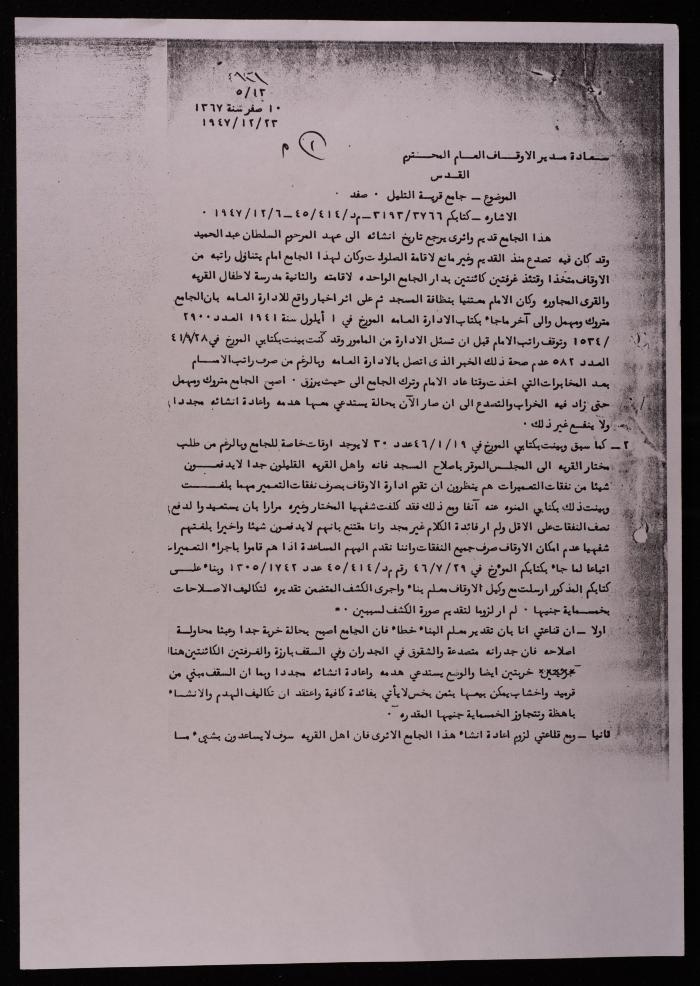 ٥/١٣
١٠ صفر سنة ١٣٦٧
١٩٤٧/١٢/٢٣
٢
م
سعادة مدير الاوقاف العام المحترم
القدس
الموضوع ــ جامع قرية التليل ٠ صفد ٠
الاشاره ــ كتابكم ٣١٩٣/٣٧٦٦ ــ م د/٤٥/٤١٤ ــ ١٩٤٧/١٢/٦ ٠
هذا الجامع قديم واثرى يرجع تاريخ انشائه الى عهد المرحوم السلطان عبد الحميد
وقد كان فيه تصدع منذ القديم وغير مانع لاقامة الصلوات وكان لهذا الجامع امام يتناول راتبه من
الاوقاف متخذا وقتئذ غرفتين كائنتين بدار الجامع الواحده لاقامته والثانية مدرسة لاطفال القريه
والقرى المجاوره وكان الامام معتنيا بنظافة المسجد ثم على اثر اخبار واقع للادارة العامه بان الجامع
متروك ومهمل والى آخر ماجاء بكتاب الادارة العامه المورخ في ١ أيلول سنة ١٩٤١ العدد ٢٩٠٠
/١٥٣٤ وتوقف راتب الامام قبل ان تسئل الادارة من المامور وقد كنت بينت بكتابي المورخ في ٤١/٩/٢٨
العدد ٥٨٢ عدم صحة ذلك الخبر الذى اتصل بالادارة العامه وبالرغم من صرف راتب الامام
بعد المخابرات التي اخذت وقتا عاد الامام وترك الجامع الى حيث يرزق ٠ اصبح الجامع متروك ومهمل
حتى زاد فيه الخراب والتصدع الى ان صار الآن بحالة يستدعي معها هدمه واعادة انشائه مجددا
ولا ينفع غير ذلك ٠
٢ ــ كما سبق وبينت بكتابي المورخ في ٤٦/١/١٩ عدد ٣٠ لا يوجد اوقات خاصة للجامع وبالرغم من طلب
مختار القريه الى المجلس الموقر باصلاح المسجد فانه واهل القريه القليلون جدا لا يدفعون
شيئا من نفقات التعميرات هم ينظرون ان تقوم ادارة الاوقاف بصرف نفقات التعمير مهما بلغت
وبينت ذلك بكتابي المنوه عنه آنفا ومع ذلك فقد كلفت شفهيا المختار وغيره مرارا بان يستعيدوا لدفع
نصف النفقات على الاقل ولم ار فائدة الكلام غير مجد وانا مقتنع بانهم لا يدفعون شيئا واخيرا بلغتهم
شفهيا عدم امكان الاوقاف صرف جميع النفقات واننا نقدم اليهم المساعدة اذا هم قاموا باجراء التعميرات
اتباعا لما جاء بكتابكم المؤرخ في ٤٦/٧/٢٩ رقم م د/٤٥/٤١٤ عدد ١٣٠٥/١٧٤٢ وبناء علــى
كتابكم المذكور ارسلت مع وكيل الاوقاف معلم بناء واجرى الكشف المتضمن تقديره لتكاليف الاصلاحات
بخمسماية جنيها ٠ لم ار لزوما لتقديم صورة الكشف لسببين ٠ــ
اولا ــ ان قناعتي انا بان تقدير معلم البناء خطاء فان الجامع اصبح بحالة خربة جدا وعبثا محاولــة
اصلاحه فان جدرانه متصدعة والشقوق في الجدران وفي السقف بارزة والغرفتين الكائنتين هنا
خربتين ايضا والوضع يستدعي هدمه واعادة انشائه مجددا وبما ان السقف مبني من
قرميد واخشاب يمكن بيعها بثمن بخس لا يأتي بفائدة كافية واعتقد ان تكاليف الهدم والانشاء
باهظة وتتجاوز الخمسماية جنيها المقدره ٠
ثانيا ــ ومع قناعتي لزوم اعادة انشاء هذا الجامع الاثرى فان اهل القريه سوف لا يساعدون بشيء مــا